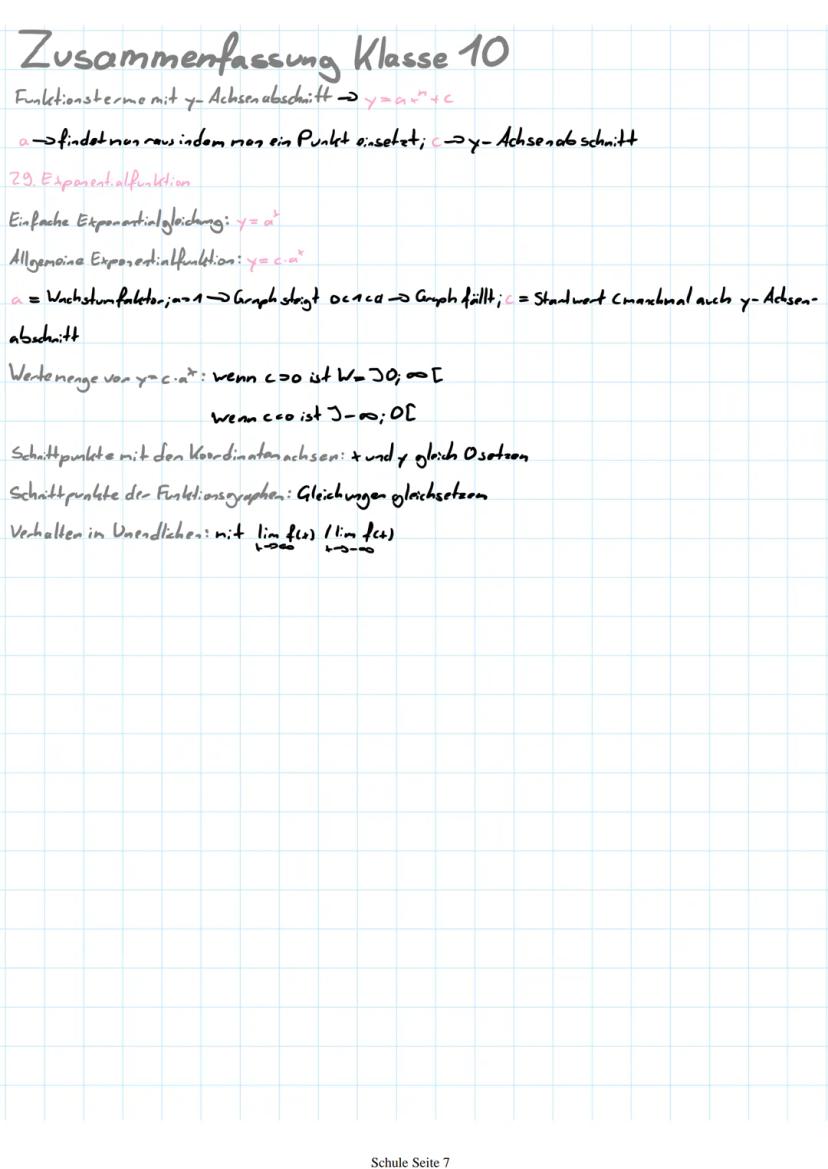 Zusammenfassung Klasse 10
Funktionsterme mit y-Achsenabschnitt → y=a·xⁿ+c
a → findet man raus indem man ein Punkt einsetzt; c → y-Achsenabschnitt
29. Exponentialfunktion
Einfache Exponentialgleichung: y = aˣ
Allgemeine Exponentialfunktion: y = c·aˣ
a = Wachstumfaktor; a>1 → Graph steigt 0<1<a → Graph fällt; c = Startwert (manchmal auch y-Achsen-
abschnitt
Wertemenge von y=c·aˣ: wenn c>0 ist W= ]0; ∞[
wenn c<0 ist ]-∞; 0[
Schnittpunkte mit den Koordinatenachsen: x und y gleich 0 setzen
Schnittpunkte der Funktionsgraphen: Gleichungen gleichsetzen
Verhalten im Unendlichen: mit lim f(x) / lim f(x)
x→∞ x→-∞
Schule Seite 7